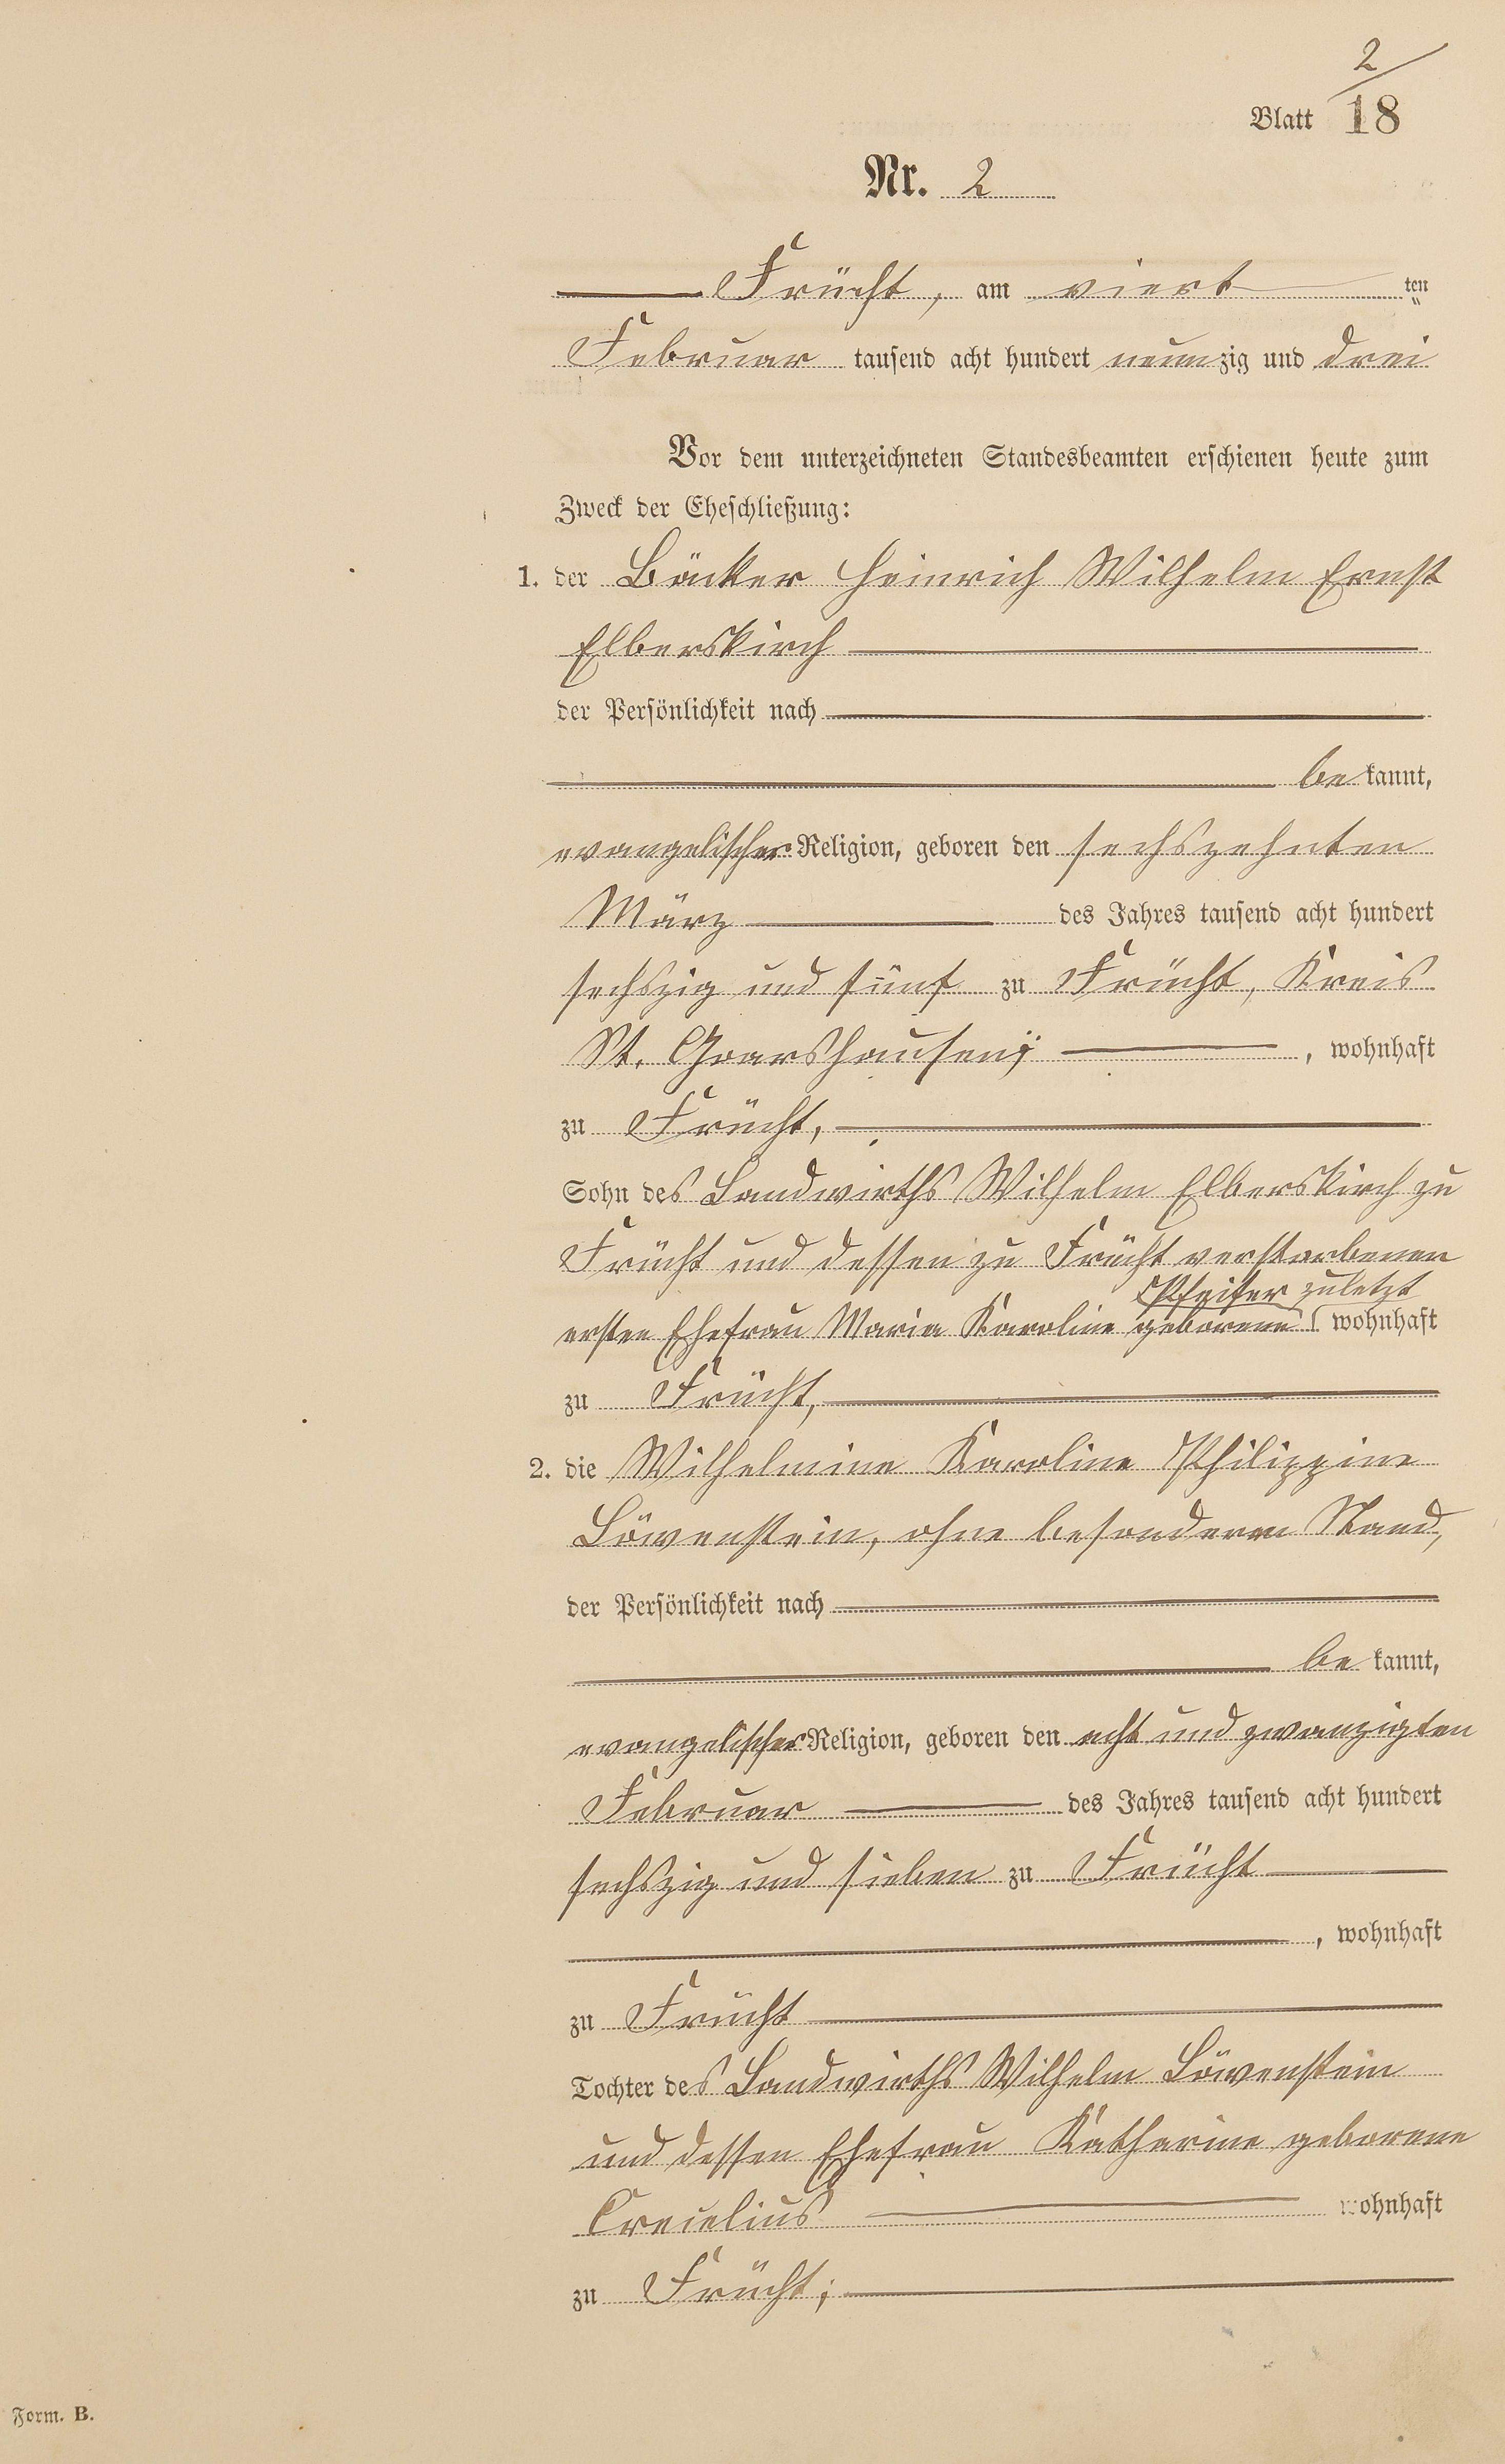 2
Blatt 18
Nr. 2
Frücht, am viert ten
Februar tausend acht hundert neunzig und drei
Vor dem unterzeichneten Standesbeamten erschienen heute zum
Zweck der Eheschließung:
1. der Bäcker Heinrich Wilhelm Ernst
Elberskirch
der Persönlichkeit nach
bekannt,
evangelischer Religion, geboren den sechszehnten
März des Jahres tausend acht hundert
sechszig und fünf zu Frücht, Kreis
St. Goarshausen, wohnhaft
zu Frücht,
Sohn des Landwirths Wilhelm Elberskirch zu
Frücht und dessen zu Frücht verstorbenen
Pfeifer zuletzt
ersten Ehefrau Maria Karoline geborene wohnhaft
zu Frücht,
2. die Wilhelmine Karoline Philippine
Löwenstein, ohne besonderen Stand,
der Persönlichkeit nach
bekannt,
evangelischer Religion, geboren den acht und zwanzigten
Februar des Jahres tausend acht hundert
sechszig und sieben zu Frücht
, wohnhaft
zu Frücht
Tochter des Landwirths Wilhelm Löwenstein
und dessen Ehefrau Katharine geborene
Crecelius wohnhaft
zu Frücht;
Form. B.